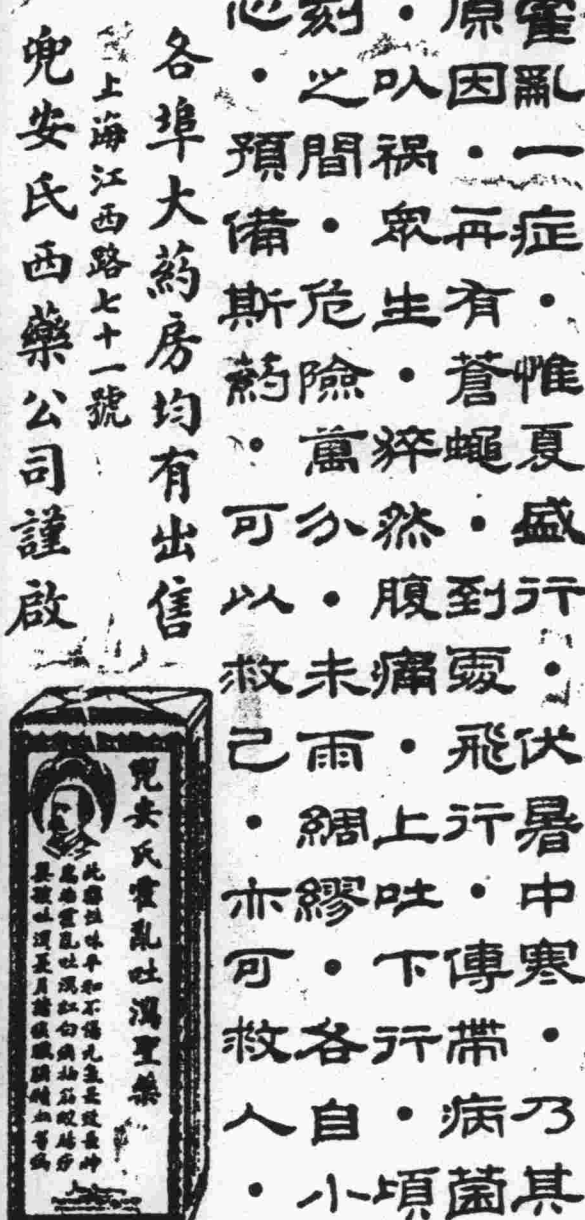 霍亂一症·惟夏盛行·伏暑中寒·乃其
原因·再有蒼蠅·到處飛行·傳帶病菌
·以祸眾生·猝然腹痛·上吐下行·頃
刻之間·危險萬分·未雨綢繆·各自小
心·預備斯葯·可以救己·亦可救人·
各埠大葯房均有出售
上海江西路七十一號
兜安氏西藥公司謹啟
兜安氏霍亂吐瀉聖藥